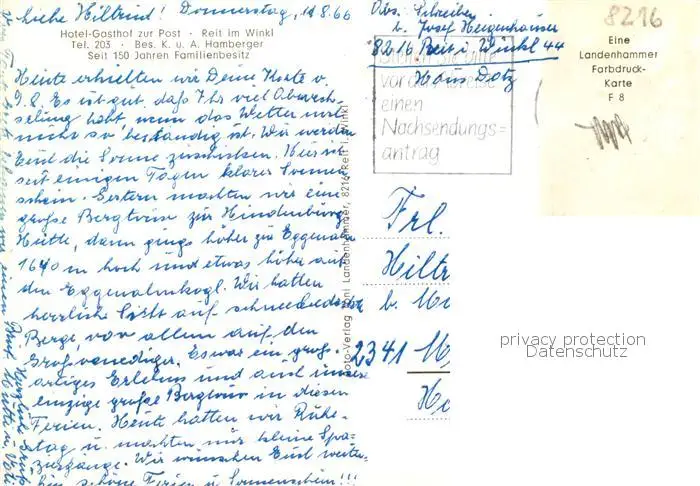 Liebe Hiltrud! Donnerstag, 11.8.66
Hotel-Gasthof zur Post · Reit im Winkl
Tel. 203 · Bes. K. u. A. Hamberger
Seit 150 Jahren Familienbesitz
Heute erhielten wir Deine Karte v.
9.8. Es ist gut, daß Ihr viel Abwech-
selung habt, wenn das Wetter auch
nicht so beständig ist. Wir werden
Euch die Sonne zuschicken. Hier ist
seit einigen Tagen klarer Sonnen-
schein. Gestern machten wir eine
große Bergtour zur Hindenburg
Hütte, dann gings höher zur Eggenalm
1640 m hoch und etwas höher auf
den Eggenalmkogl. Wir hatten
herrliche Sicht auf schneebedeckte
Berge, vor allem auf den
Großvenediger. Es war ein groß-
artiges Erlebnis und auch unsere
einzige große Bergtour in diesen
Ferien. Heute hatten wir Ruhe-
tag u. machten nur kleine Spa-
ziergänge. Wir wünschen Euch weiter-
hin schöne Ferien u. Sonnenschein!!!
Herzliche Grüße
Foto-Verlag Toni Landenhammer, 8216 Reit i. Winkl
Abs. Schreiber
b. Josef Heigenhauser
8216 Reit i. Winkl 44
Haus Dotz
Stellen Sie bitte
vor der Abreise
einen
Nachsendungs=
antrag
Frl.
Hiltr
b.
2341
8216
Eine
Landenhammer
Farbdruck-
Karte
F 8
privacy protection
Datenschutz